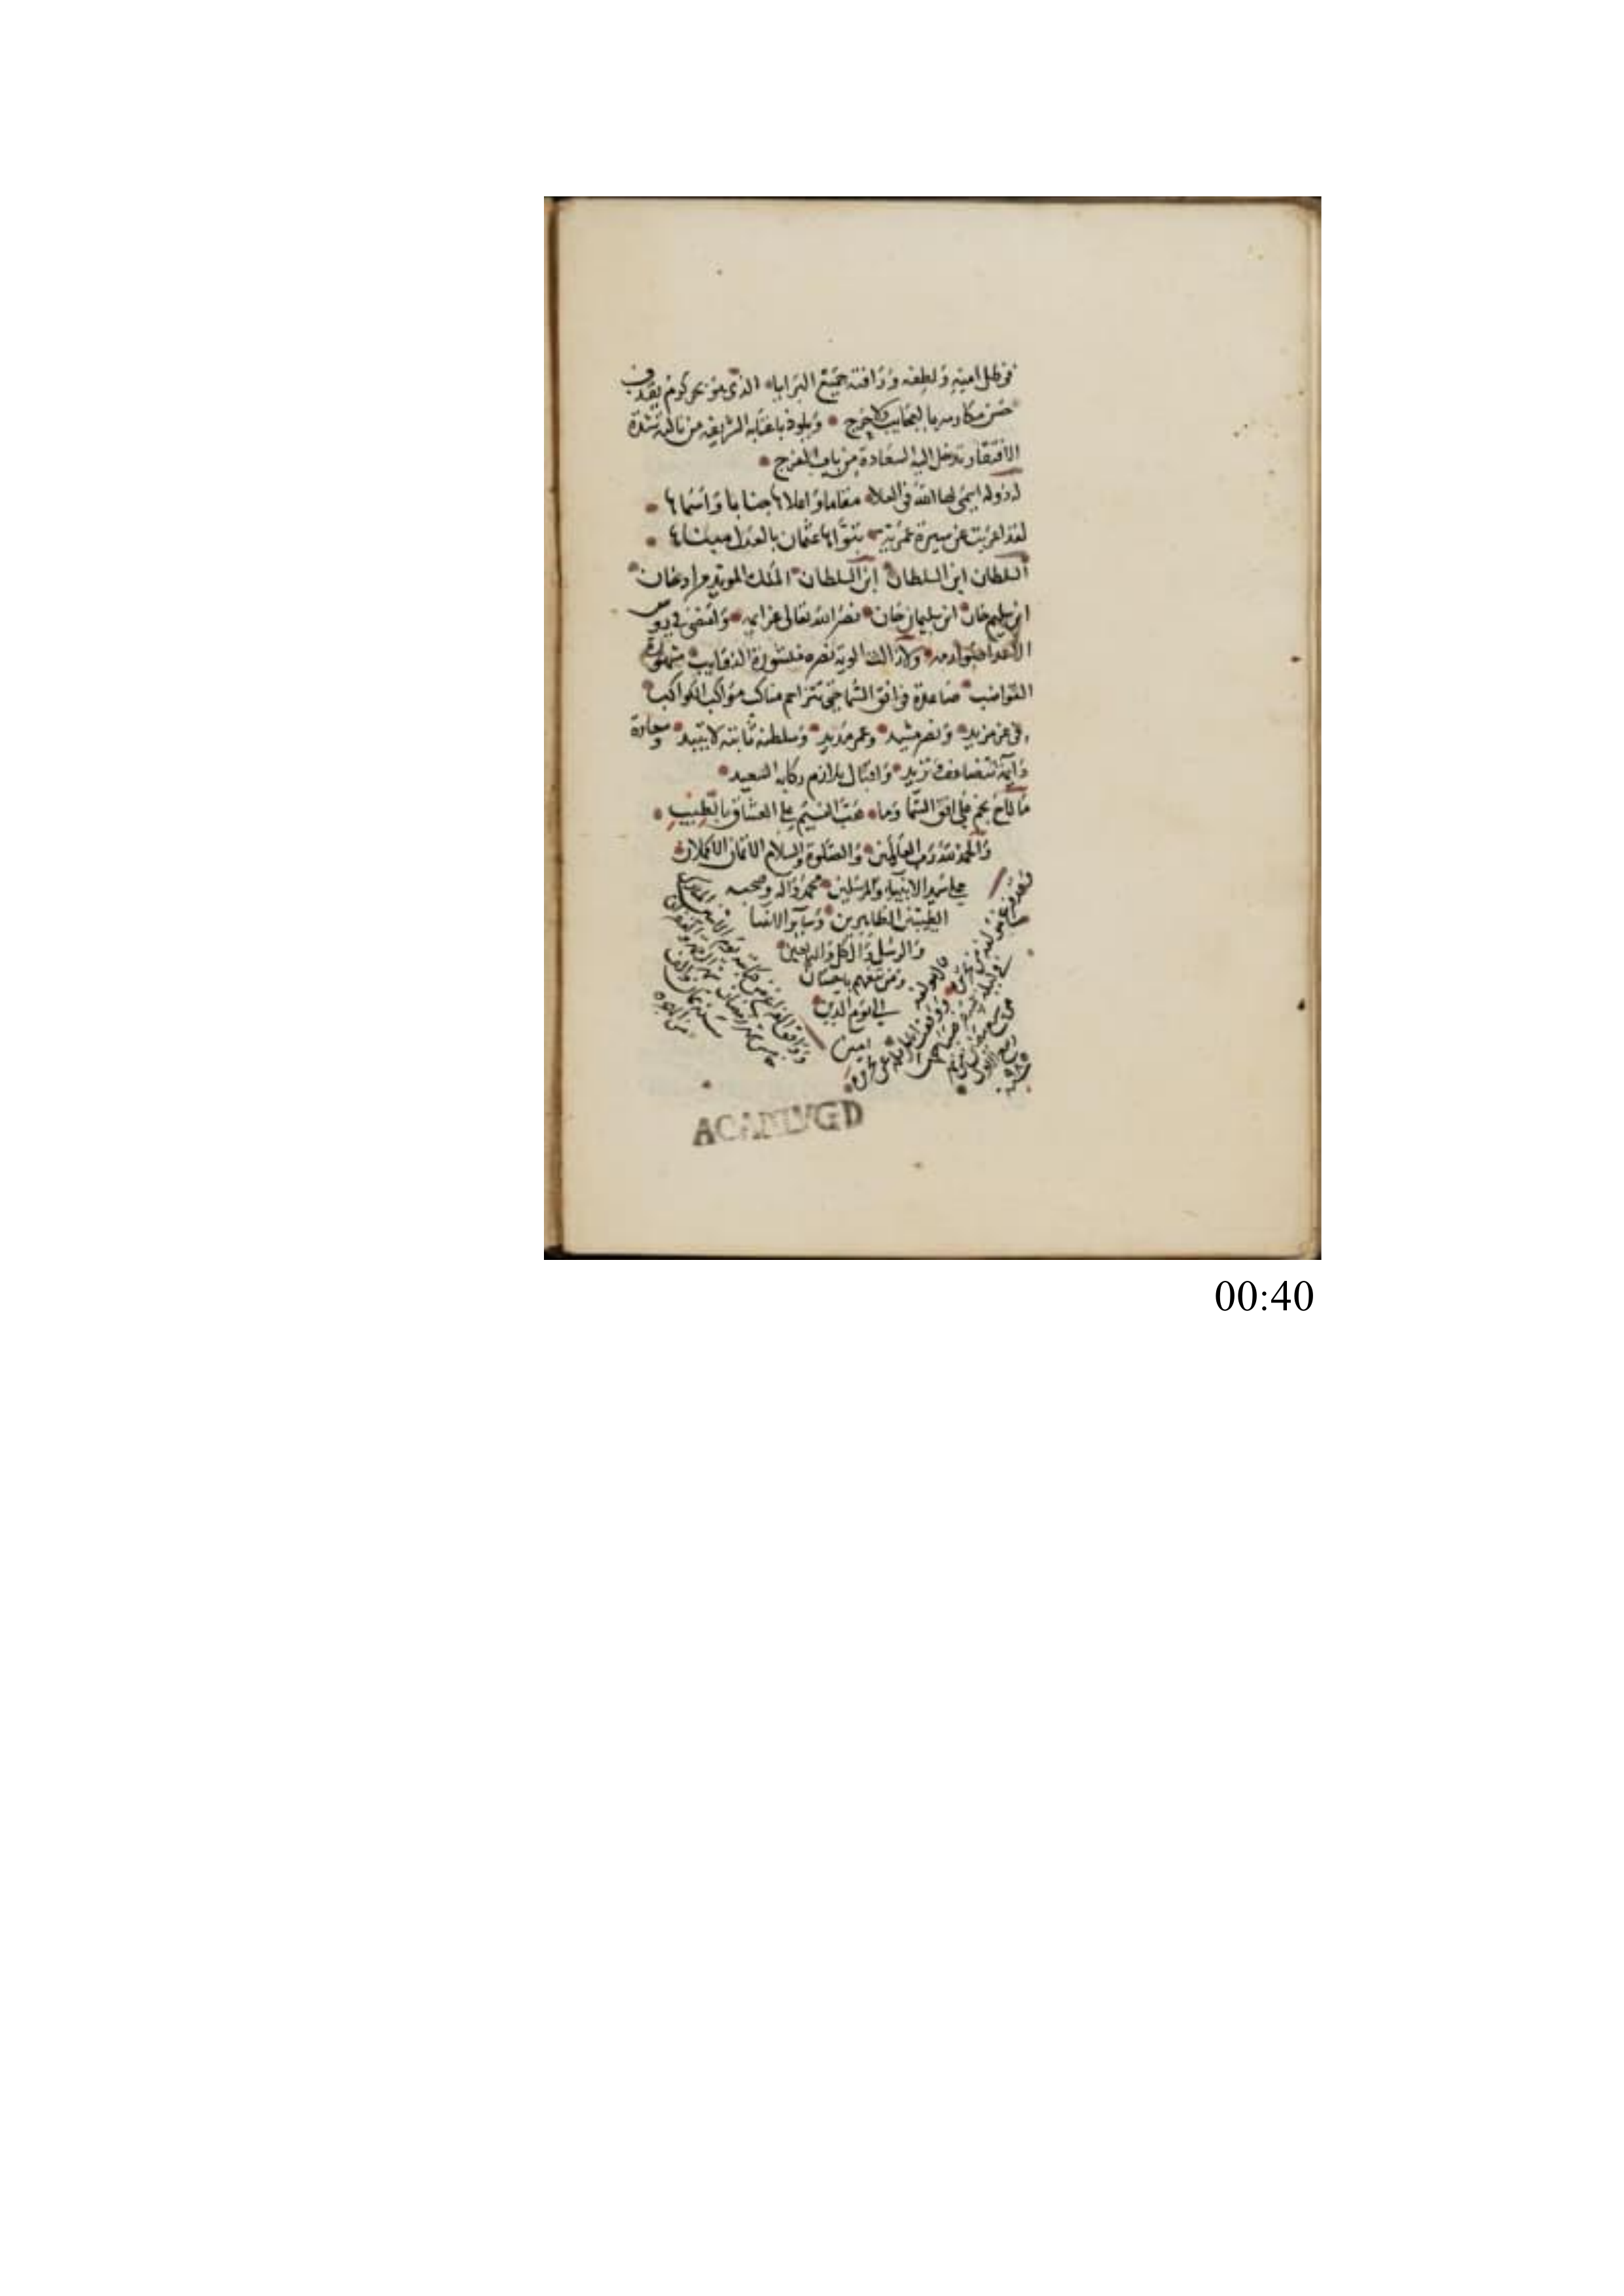 في ظل امنه ولطفه ورافته جميع البرايا الذي هو بحر كرم يقذف
حسن مكارمه بالعجايب ولا حرج ويلوذ باعتابه الشريفه من نالته شدة
الافتقار تدخل اليه السعادة من باب الفرج
لدولة اسمى لها الله في العلا مقاما واعلاها جنابا واسماها
لقد اعربت عن سيرة عمرية بنوّاها عثمان بالعدل مبناها
السلطان ابن السلطان ابن السلطان الملك المويد مراد خان
ابن سليم خان ابن سليمان خان نصر الله تعالى عزايمه وامضى في روس
الاعدا صوارمه ولا زالت الوية نصره منشورة الذوايب مشهورة
القواضب صاعدة في افق السما حتى تتزاحم مناكب مواكب الكواكب
في عز مزيد ونصر مشيد وعمر مديد وسلطنة ثابتة لا تبيد وسعادة
دايمة تتضاعف وتزيد واقبال يلازم ركابه السعيد
ما لاح نجم على افق السما وما هب النسيم على العشاق بالطيب
والحمد لله رب العالمين والصلوة والسلام الاتمان الاكملان
على سيد الانبياء والمرسلين محمد واله وصحبه
الطيبين الطاهرين وساير الانبيا
والرسل وال كل والتابعين
ومن تبعهم باحسان
الى يوم الدين
امين
ووافق الفراغ من كتابته يوم الاثنين المبارك
سنة ثمان والف
من الهجرة
قال مولفه
ربيع الاول
سنة
ACAD LVGD
00:40